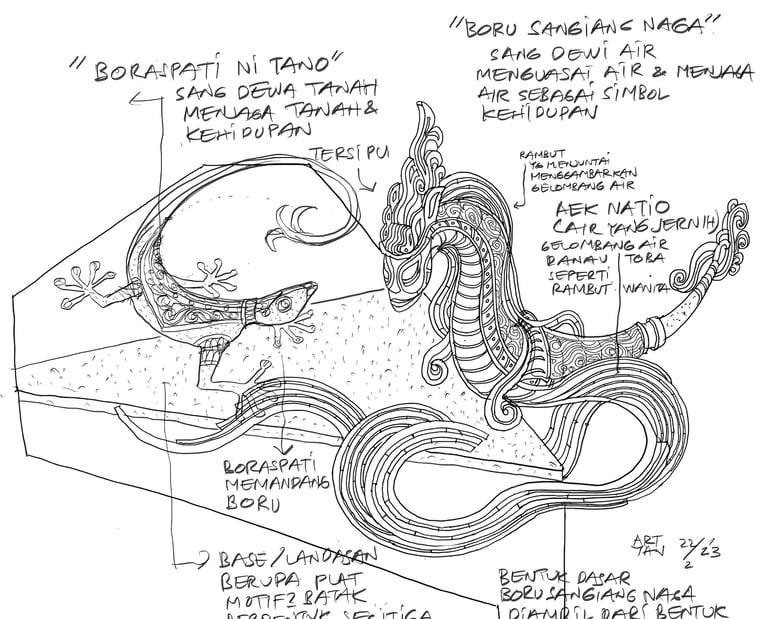 "BORASPATI NI TANO"
SANG DEWA TANAH
MENJAGA TANAH &
KEHIDUPAN
TERSIPU
"BORU SANGIANG NAGA"
SANG DEWI AIR
MENGUASAI AIR & MENJAGA
AIR SEBAGAI SIMBOL
KEHIDUPAN
RAMBUT
YG MENJUNTAI
MENGGAMBARKAN
GELOMBANG AIR
AEK NATIO
(AIR YANG JERNIH)
GELOMBANG AIR
DANAU TOBA
SEPERTI
RAMBUT WANITA
BORASPATI
MEMANDANG
BORU
BASE/LANDASAN
BERUPA PLAT
MOTIF2 BATAK
BERBENTUK SEGITIGA
ART
22/23
2
BENTUK DASAR
BORU SANGIANG NAGA
DIAMBIL DARI BENTUK